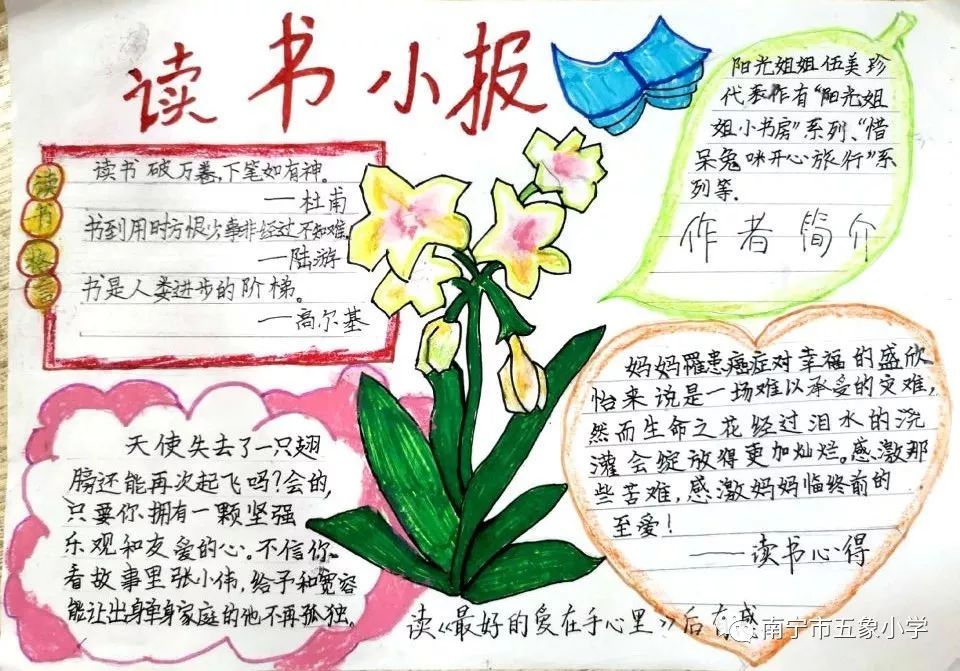 读书小报
读书格言
读书破万卷,下笔如有神。
—杜甫
书到用时方恨少事非经过不知难。
—陆游
书是人类进步的阶梯。
—高尔基
阳光姐姐伍美珍
代表作有“阳光姐
姐小书房”系列、“惜
呆兔咪开心旅行”系
列等。
作者简介
天使失去了一只翅
膀还能再次起飞吗?会的,
只要你拥有一颗坚强
乐观和友爱的心。不信你
看故事里张小伟,给予和宽容
能让出身单身家庭的他不再孤独。
妈妈罹患癌症对幸福的盛欣
怡来说是一场难以承受的灾难,
然而生命之花经过泪水的浇
灌会绽放得更加灿烂。感激那
些苦难,感激妈妈临终前的
至爱!
——读书心得
读《最好的爱在手心里》后有感
南宁市五象小学